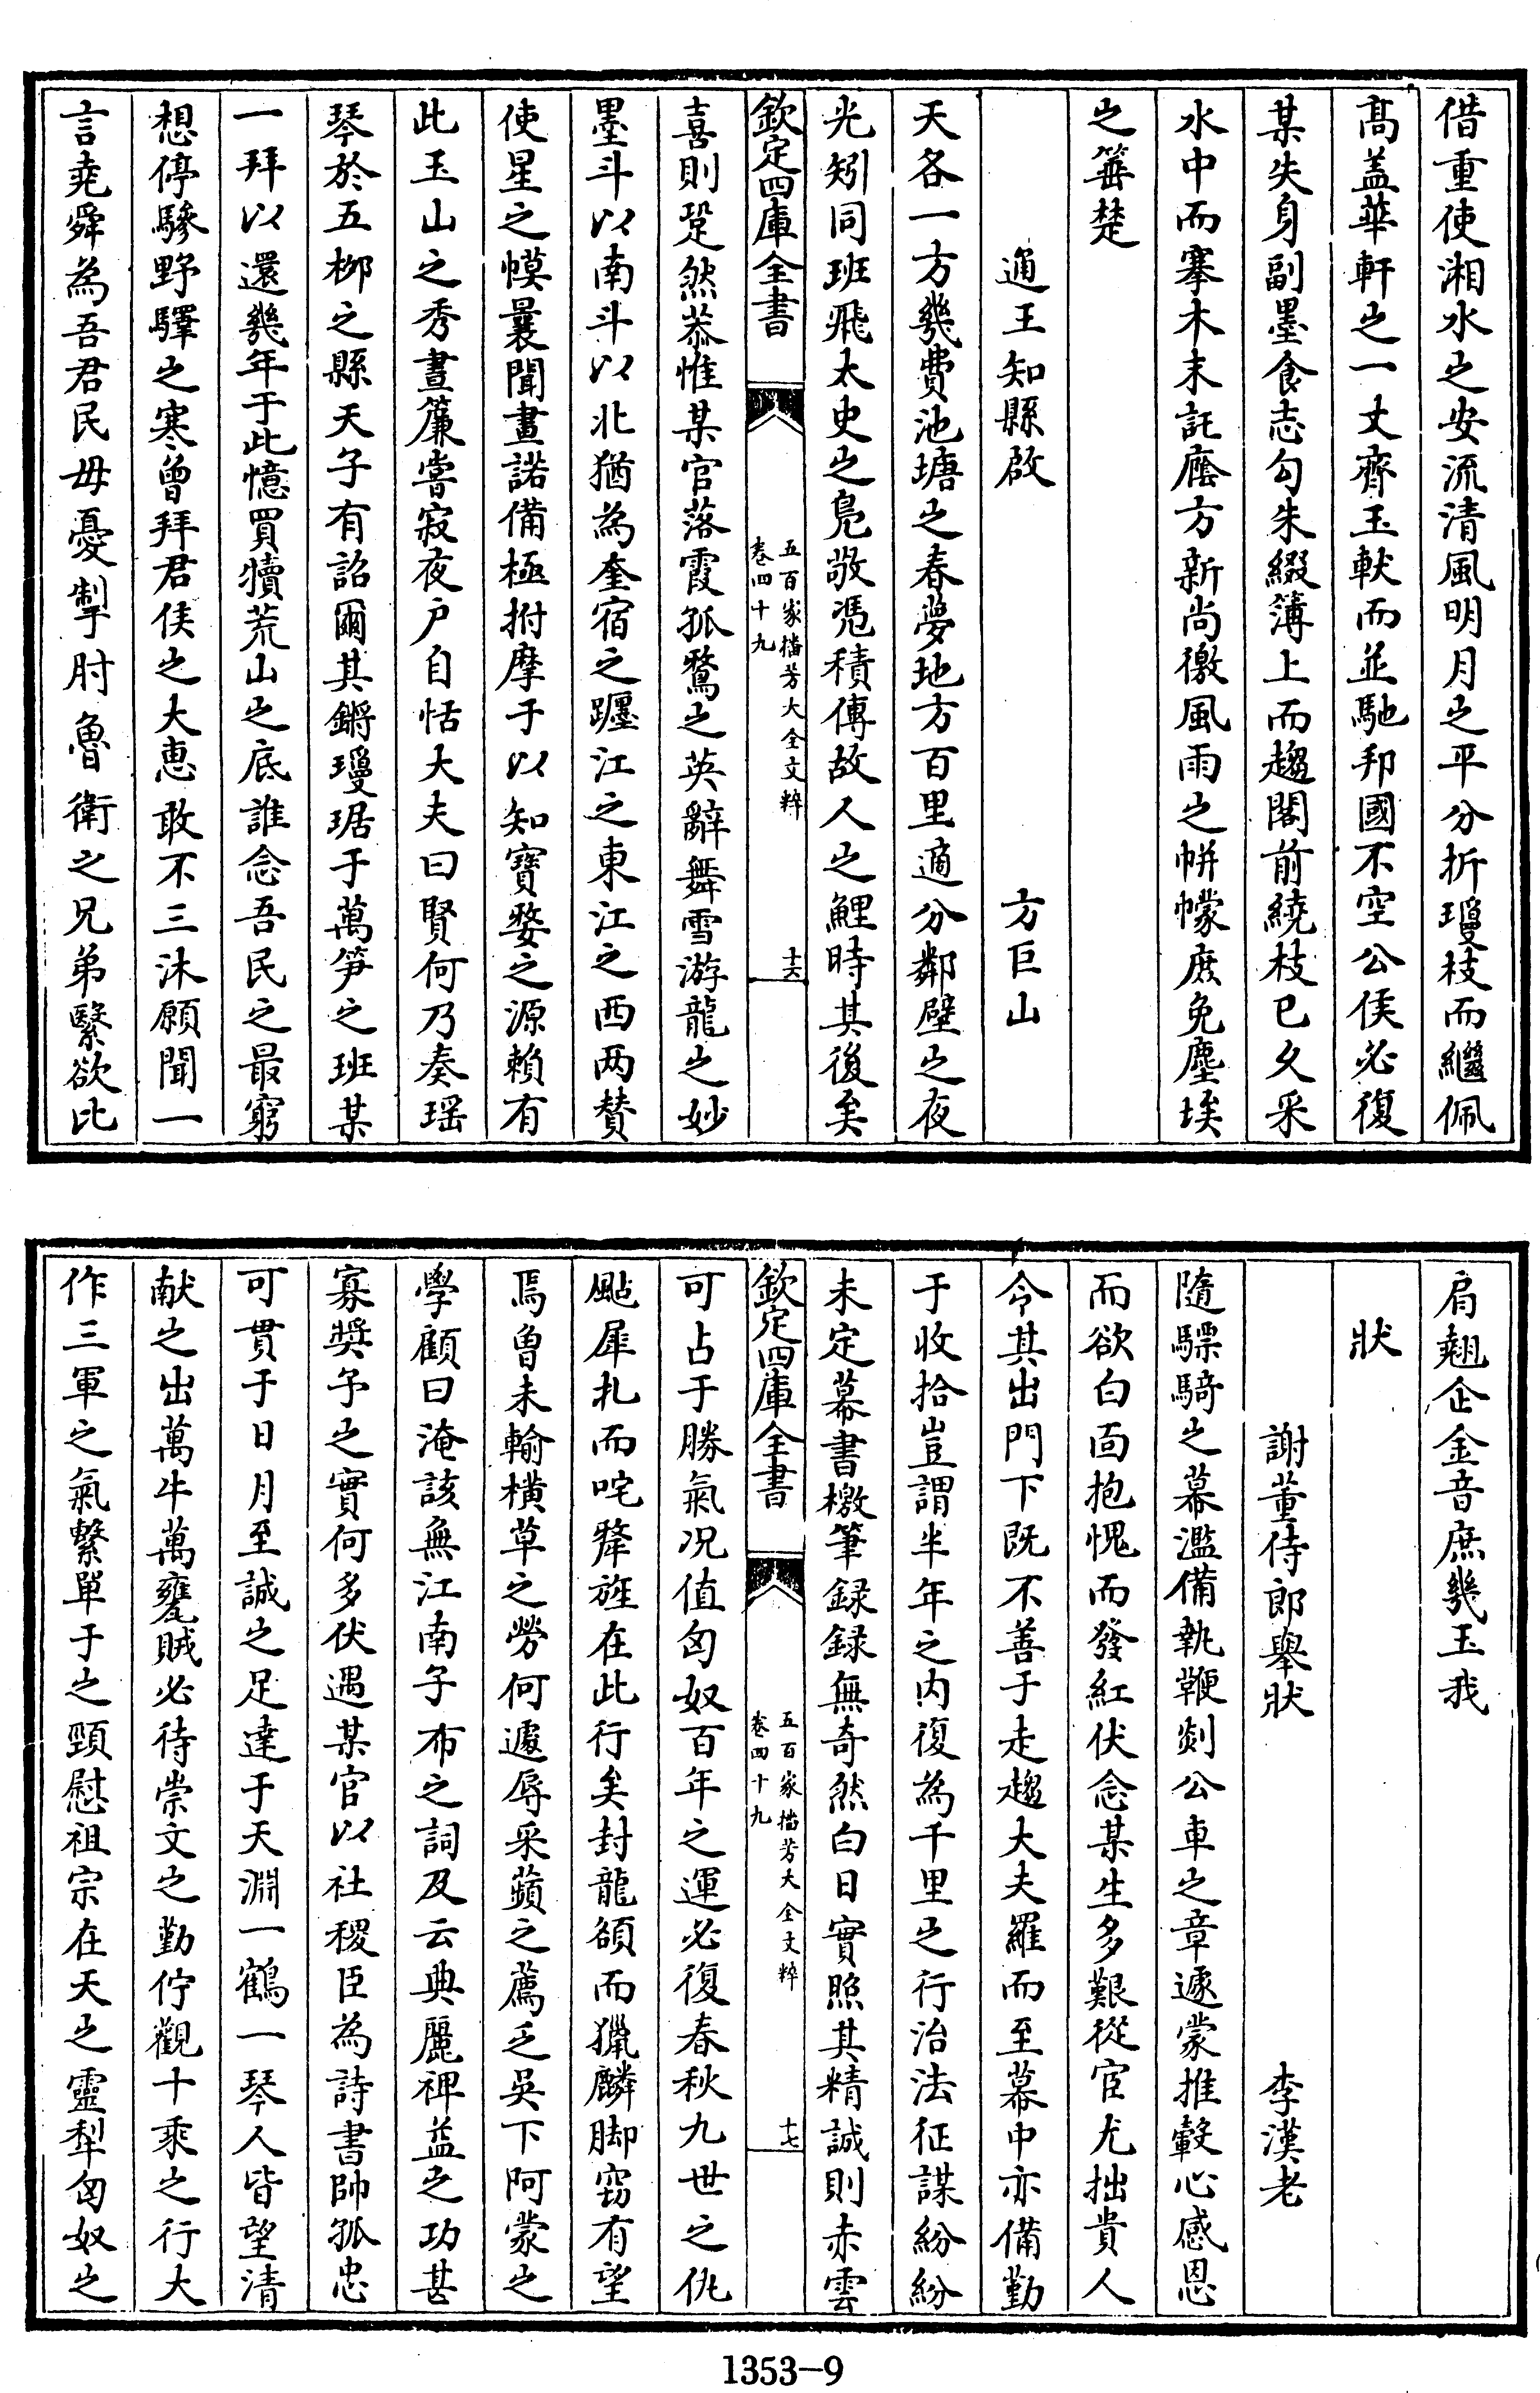 借重使湘水之安流清風明月之平分折瓊枝而繼佩
髙蓋華軒之一丈齊玉軑而並馳邦國不空公侯必復
某失身副墨食志勾朱綴簿上而趨閣前繞枝已久采
水中而搴木末託廕方新尚徼風雨之帡幪庶免塵埃
之箠楚
通王知縣啟　方巨山
天各一方幾費池塘之春夢地方百里適分鄰壁之夜
光矧同班飛太史之鳬敬憑積傳故人之鯉時其後矣
欽定四庫全書　五百家播芳大全文粹　卷四十九　十六
喜則跫然恭惟某官落霞孤鶩之英辭舞雪游龍之妙
墨斗以南斗以北猶為奎宿之躔江之東江之西兩贊
使星之幙曩聞畫諾備極拊摩于以知寶婺之源賴有
此玉山之秀晝簾嘗寂夜户自恬大夫曰賢何乃奏瑶
琴於五柳之縣天子有詔爾其鏘瓊琚于萬笋之班某
一拜以還幾年于此憶買犢荒山之底誰念吾民之最窮
想停驂野驛之寒曾拜君侯之大惠敢不三沐願聞一
言堯舜為吾君民毋憂掣肘魯衛之兄弟繄欲比
肩翹企金音庶幾玉我
狀
謝董侍郎舉狀　李漢老
隨驃騎之幕濫備執鞭剡公車之章遽蒙推轂心感恩
而欲白面抱愧而發紅伏念某生多艱從宦尤拙貴人
令其出門下既不善于走趨大夫羅而至幕中亦備勤
于收拾豈謂半年之内復為千里之行治法征謀紛紛
未定幕書檄筆録録無奇然白日實照其精誠則赤雲
欽定四庫全書　五百家播芳大全文粹　卷四十九　十七
可占于勝氣况值匈奴百年之運必復春秋九世之仇
颭犀札而咤犛旌在此行矣封龍頟而獵麟脚窃有望
焉魯未輸横草之勞何遽辱采蘋之薦乏吳下阿蒙之
學顧曰淹該無江南子布之詞及云典麗禆益之功甚
寡奬予之實何多伏遇某官以社稷臣為詩書帥孤忠
可貫于日月至誠之足達于天淵一鶴一琴人皆望清
献之出萬牛萬甕賊必待崇文之勤佇觀十乘之行大
作三軍之氣繫單于之頸慰祖宗在天之靈犁匈奴之
1353—9